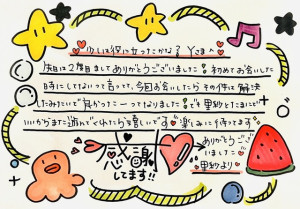 少しは役に立ったかな？Yさま
先日は2度目ましてありがとうございました！初めてお会いした
時にしてないって言ってて、今回お会いしたらその件は解決
したみたいで良かったーってなりました！でも里紗とたまにで
いいからまた遊んでくれたら嬉しいです 楽しみに待ってます
ありがとうございました
里紗より
感謝
してます!!